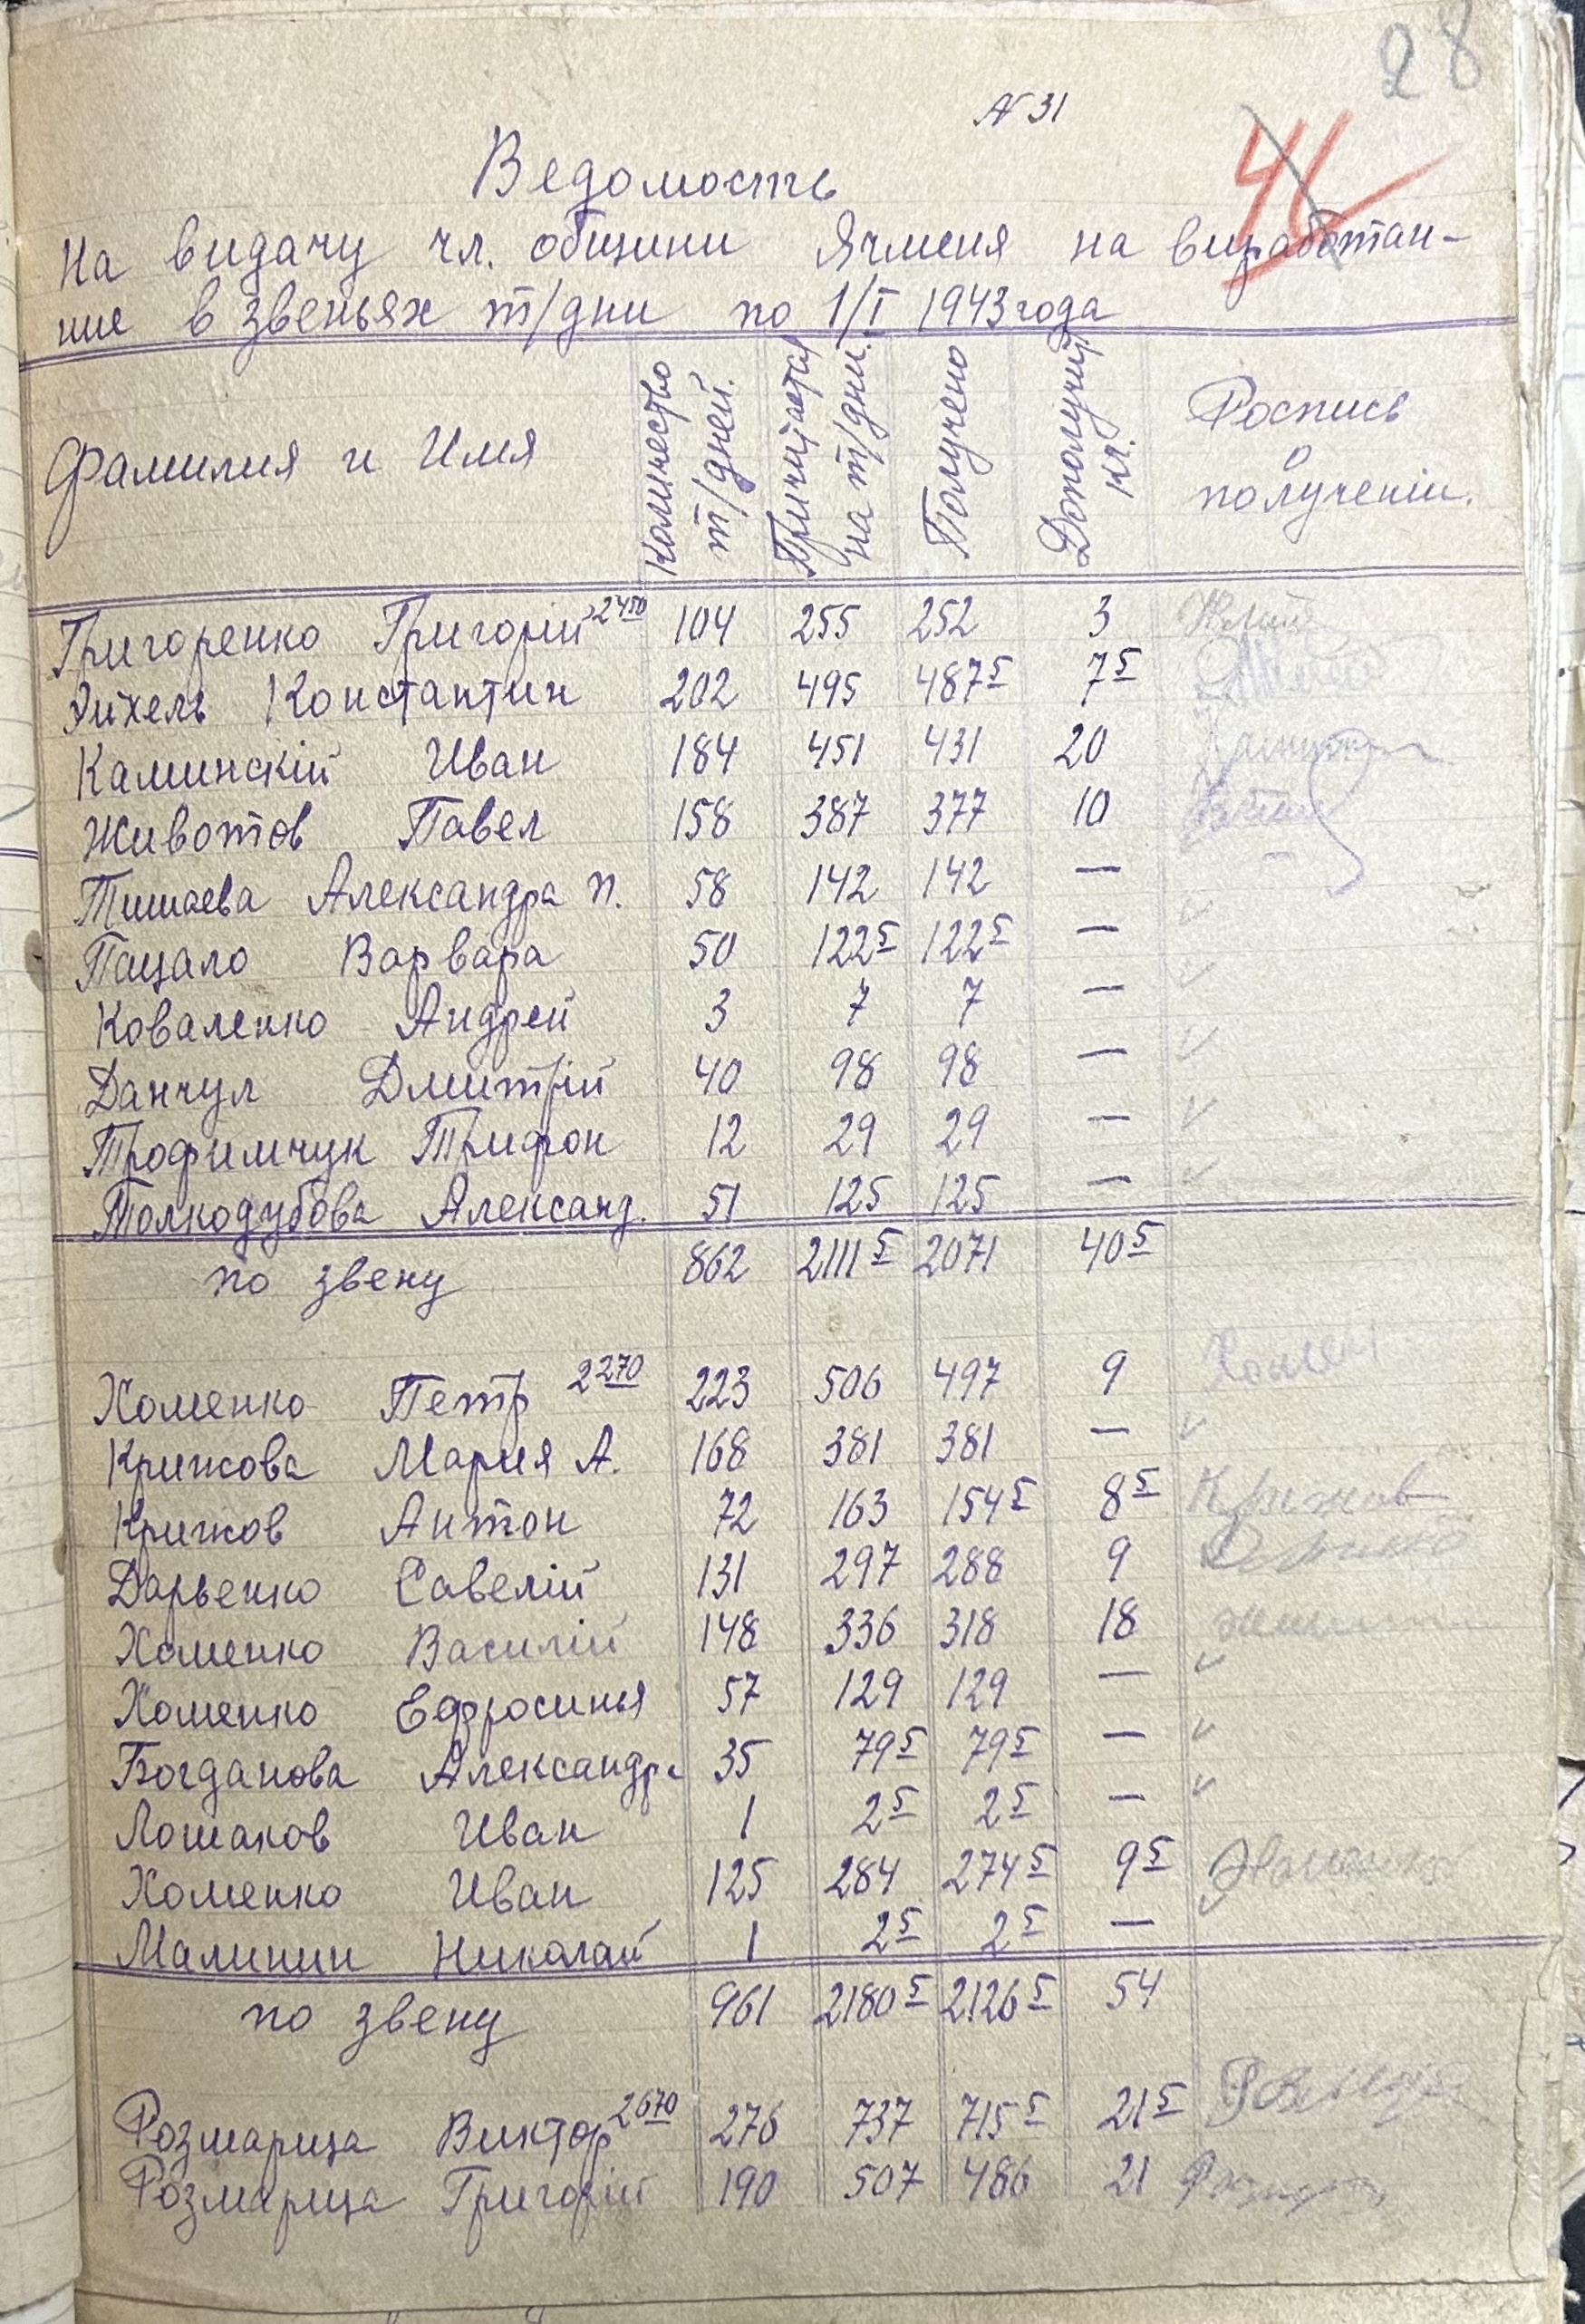 28
№ 31
46
Ведомость
На видачу чл. общини Ячменя на виработан-
ние в звеньях т/дни по 1/I 1943 года
Фамилия и Имя Количество т/дней. Причитается на т/дни. Получено Дополучит кг. Роспись о полученіи.
Григоренко Григорій 2450 104 255 252 3
Эйхель Константин 202 495 487 5 7 5
Каминскій Иван 184 451 431 20
Животов Павел 158 387 377 10
Тишаева Александра П. 58 142 142 —
Пацало Варвара 50 122 5 122 5 —
Коваленко Андрей 3 7 7 —
Данчул Дмитрій 40 98 98 —
Трофимчук Трифон 12 29 29 —
Толкодубова Александ. 51 125 125 —
по звену 862 2111 5 2071 40 5
Хоменко Петр 2270 223 506 497 9
Крижова Мария А. 168 381 381 —
Крижов Антон 72 163 154 5 8 5 Крижов
Дарьенко Савелій 131 297 288 9
Хоменко Василій 148 336 318 18
Хоменко Ефросинья 57 129 129 —
Богданова Александра 35 79 5 79 5 —
Лошаков Иван 1 2 5 2 5 —
Хоменко Иван 125 284 274 5 9 5
Малинин Николай 1 2 5 2 5 —
по звену 961 2180 5 2126 5 54
Розмарица Виктор 2670 276 737 715 5 21 5
Розмарица Григорій 190 507 486 21